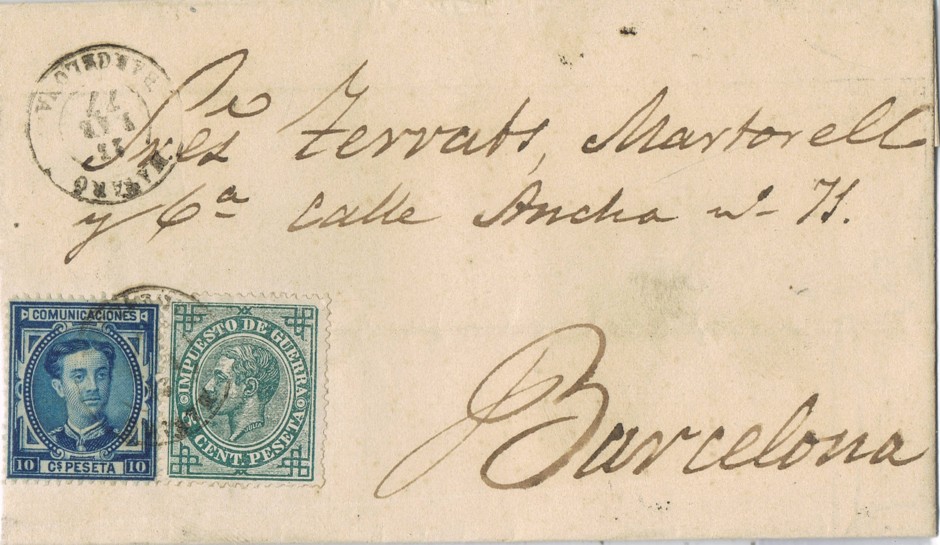 BARCELONA
77
MAR
MATARÓ
Sres Terrats, Martorell
y Cª calle Ancha nº 71.
Barcelona
COMUNICACIONES
10 Cs PESETA 10
IMPUESTO DE GUERRA
JULIA
CENT. PESETA